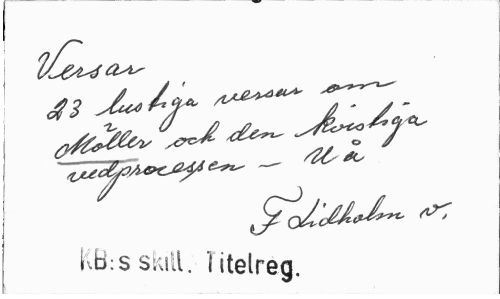 Versar
23 lustiga versar om
Möller och den kvistiga
vedprocessen – U å
F Lidholm v.
KB:s skill. Titelreg.